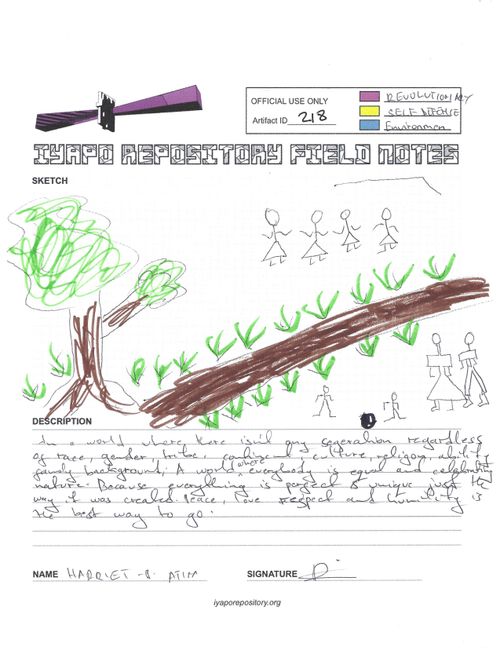 OFFICIAL USE ONLY
Artifact ID 218
REVOLUTIONARY
SELF DEFENSE
Environmen
IYAPO REPOSITORY FIELD NOTES
SKETCH
DESCRIPTION
In a world where there isn't any segeration regardless
of race, gender, tribe, continent, culture, religion, ability
family background; A world where everybody is equal and celebrating
nature. Because everything is perfect & unique just the
way it was created. Peace, love respect and humility is
the best way to go.
NAME HARRIET -B. ATIM
SIGNATURE
iyaporepository.org